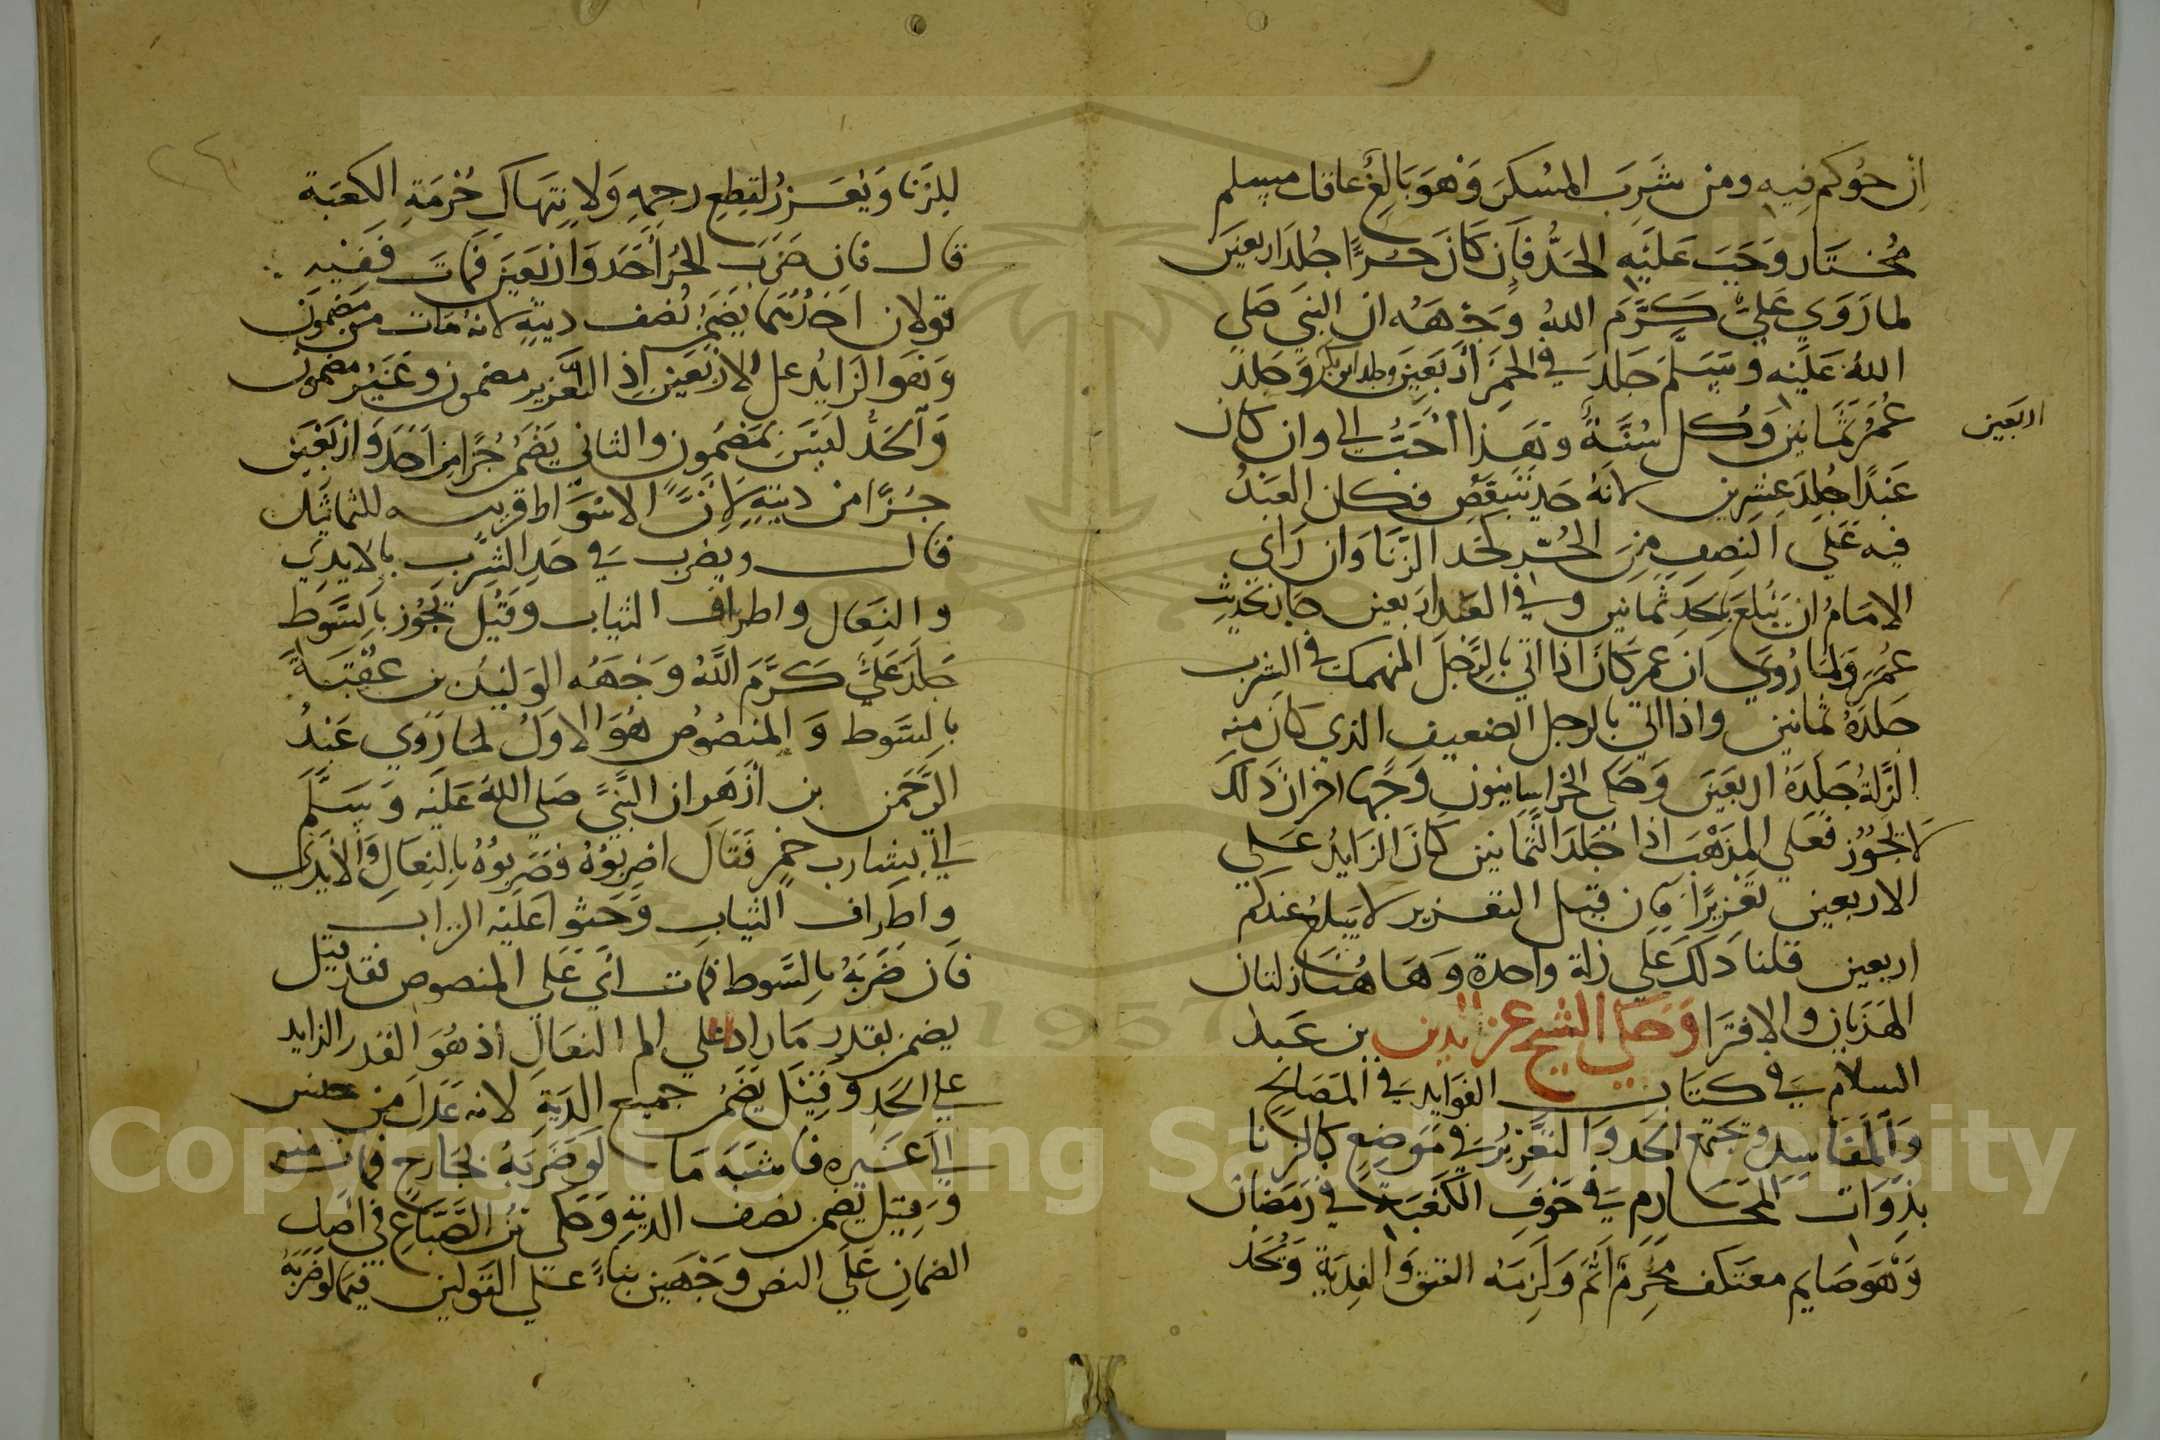 ان حوكم فيه ومن شَرِبَ المسُكرَ وَهوَ بَالِغ عاقل مسلم
مُختَار وَجَبَ عَليَهِ الحَدُّ فاِن كَانَ حُرًّا جُلدَ اربعين
لما رَوَي عَليٌّ كَرَّمَ اللهُ وَجْهَهُ ان النبيَ صَلي
اللهُ عَليَه وَسَلَّمَ جَلدَ في الخمَرِ أربَعِينَ وجلد ابو بكر وَجَلد
اربَعين
عُمَرُ ثَمَانينَ وَكُل سُنَّةٌ وَهَذا أحَبُّ الي وان كان
عَبدًا جُلِدَ عِشرِين لانَهُ حَد يَتبَعَّض فكان العَبدُ
فيه عَلَي النصف مِنَ الحُرّ كحَد الزِّنَا وَان رَأي
الامَامُ ان يَبْلغَ بالحَدِ ثمانين وَفي العَبد اربعين جَاز لحَديثِ
عُمَر وَلمَا رُويَ ان عمر كَانَ اذا اتي بالرَّجُلَ المنهمك في الشرب
جَلدَهُ ثمانين واذا اتي بالرجل الضعيف الذي كَانَ منه
الزَّلة جَلدَهُ اربَعينَ وَحَكي الخراسانيون وَجهًا اخر ان ذلك
لاَ يَجُوُز فعَلي المذهَب اذا جَلدَ الثَّمَانين كَانَ الزايُد عَلي
الاربعين تَعزِيرًا فان قيل التعزير لا يَبلغ عندكم
اربعين قلنا ذلك عَلي زلة واحدة وَهَاهُنَا زلتان
الهذيان والافترا وَحَكي الشيخ عز الدين بن عبد
السلام في كتَاب الفوَايد في المَصَالحِ
وَالمفَاسِد وَيجتمع الحَد وَالتعَزيرُ في مَوضِع كالزنا
بذِوَات المحَارم في جَوفِ الكَعْبَة في رَمَضان
وَهوَ صَايم معتكف مُحرِم أثمَ وَلزِمَهُ العتق وَالفدِيَة وَيُحَدُ
للزِّنا وَيُعَزرُ لقِطِع رحمِهِ وَلانِتهَاكِ حُرْمَةِ الكعبَة
قال فان ضَرَبَ الحُرَ أحَدَ وَأرْبَعينَ فمَاتَ فَفيْهِ
قولان احَدُهُمَا يَضمَنُ نُصف ديتِهِ لانهُ مَات من مَضمون
وَهوَ الزايُد علي الاربَعين اِذ التَّعزير مضمون وَغَيُر مضمون
وَالحَدُّ ليَسَ بمَضمُونٍ والثاني يَضمَنُ جُزًا مِن اَحَدَ وَاربَعْين
جُزًا من دِيَتِهِ لاِنَّ الاسْوَاط قريبه للتماثُل
قال ويضرب في حَد الشرب بالايدي
و النعَال واطراف الثياب وَقيُل يَجُوُز بالسَّوط
جَلدَ عَليٌّ كَرَّمَ اللَّهُ وَجْهَهُ الوَليَد بن عقُبَةَ
بالسَّوط وَ المنصُوصُ هُوَ الاولُ لما رَوي عَبْدُ
الرَّحَمن بن أزْهَر ان النبَّيَّ صَلي اللهُ عَليَه وَسَلَّمَ
اتي بشارب خمرٍ فقالَ اضرِبُوهُ فضَرَبوُهُ بالِنعَالِ وَالايَدي
واطَراف الثيابِ وَحَثوا عَليَه التراب
فان ضَرَبَهُ بالِسَّوط فمات اي عَلي المنصوص فقد قيل
يضمن بقدر مَا زاد عَلي الم النعَالِ اذ هُوَ القدر الزايد
علي الحَدِ وَقيْل يَضمَنُ جميع الديَةِ لانه عَدَلَ مِن جنس
الي غَيره فاشبَهَ مَا لو ضَرَبَهُ بجَارحِ فمات منه
وَقيْل يَضمن نصف الديَةِ وَحَكي بنُ الصَّباغ في اصَل
الضمانِ عَلَي النص وَجْهَين بناءً علي القولين فيما لو ضَرَبَهُ